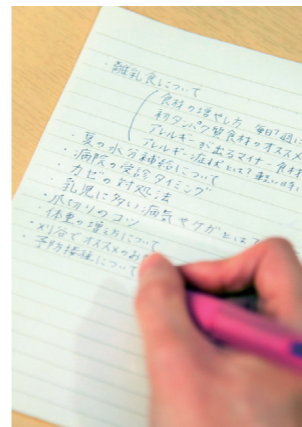 ・離乳食について
食材の増やし方 毎日?週に
初タンパク質食材のオススメ
アレルギーが出るマイナー食材
アレルギー症状といえば軽い
・夏の水分補給について
・病院の受診タイミング
・カゼの対処法
・乳児に多い病気やケガとは?
・水切りのコツ
・体重の増え方について
・オススメのお
予防接種について